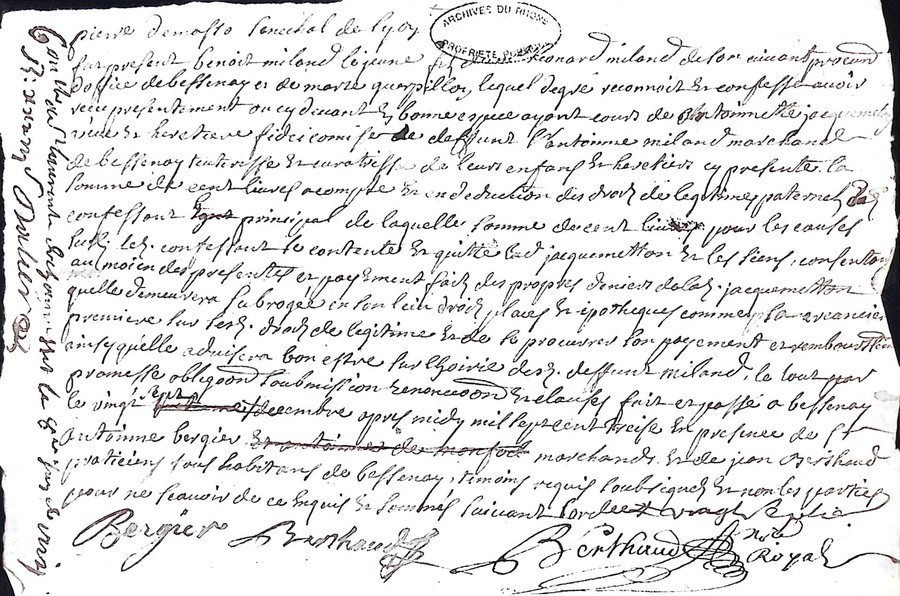 pierre demasso senechal de lyon
ARCHIVES DU RHONE
PROPRIETE PUBLIQUE
fut present benoit miland le jeune fils leonard miland de son vivant procur
doffice de bessenay et de marie guerpillon, lequel de gré reconnoit et confesse avoir
receu presentement ou cy devant en bonne espece ayant cours de anthoinette jacquemet
veuve et heretiere fideicomise de deffunt anthoinne miland marchand
de bessenay tuteresse et curatresse de leurs enfans et heretiers cy presente la
somme de cent livres acompte et en deduction des droits de legitime paternel dud
confessant principal de laquelle somme de cent livres pour les causes
susd. led. confessant se contente et quitte lad jacquemetton et les siens, consentant
au moien des presentes et payement fait des propres deniers de lad. jacquemetton
quelle demeurera subrogee en son lieu droits places et ipotheques comme plus ancienne
premiere sur lesd. droits de legitime et de se procurer son payement et remboursement
ainsy quelle advisera bon estre sur lhoirie dud. deffunt miland, le tout par
promesse obligaon soubmission renonceaon et clauses fait et passé a bessenay
le vingt sept decembre apres midy mil sept cent treise en presence de sr
antoinne bergier marchand et de jean Berthaud
praticiens tous habitans de bessenay, temoins requis soubsignes et non les parties
pour ne scavoir de ce enquis et sommés suivant lord
Bergier
Berthaud
Berthaud
nore
Royal